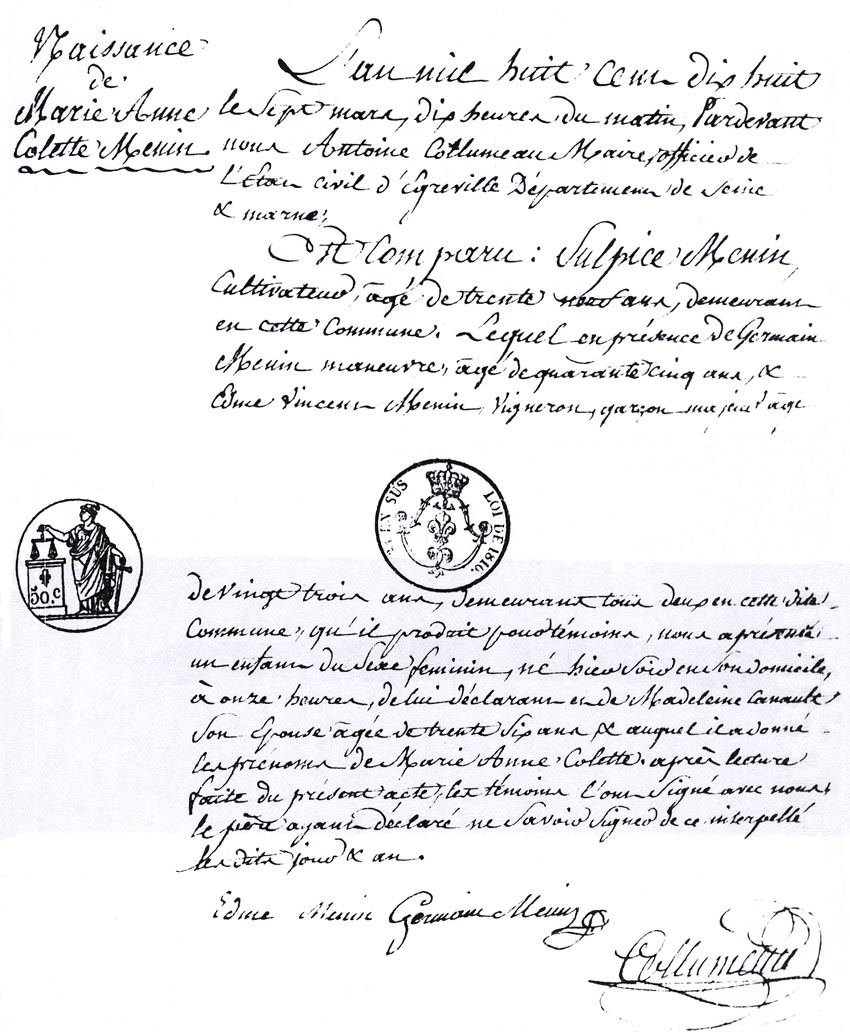 Naissance
de
Marie Anne
Colette Menin
L'an mil huit cent dix huit
le Sept mars, dix heures du matin, Pardevant
nous Antoine Collumeau Maire, officier de
L'Etat civil d'Egreville Département de Seine
& marne,
Est Comparu : Sulpice Menin,
Cultivateur, âgé de trente neuf ans, demeurant
en cette Commune. Lequel en présence de Germain
Menin maneuvre, âgé de quarante cinq ans, &
Edme Vincent Menin, Vigneron, garçon majeur âgé
EN SUS
LOI DE 1816.
50.C
de Vingt trois ans, demeurant tous deux en cette dite
Commune, qu'il produit pour témoins, nous a présenté
un enfant du Sexe feminin, né hier Soir en Son domicile,
à onze heures, de lui déclarant et de Madeleine Canault
Son Epouse âgée de trente Six ans & auquel il a donné
les prénoms de Marie Anne Colette. après lecture
faite du présent acte, les témoins l'ont Signé avec nous,
le père ayant déclaré ne Savoir Signer de ce interpellé
les dits jour & an.
Edme Menin Germain Menin
Collumeau